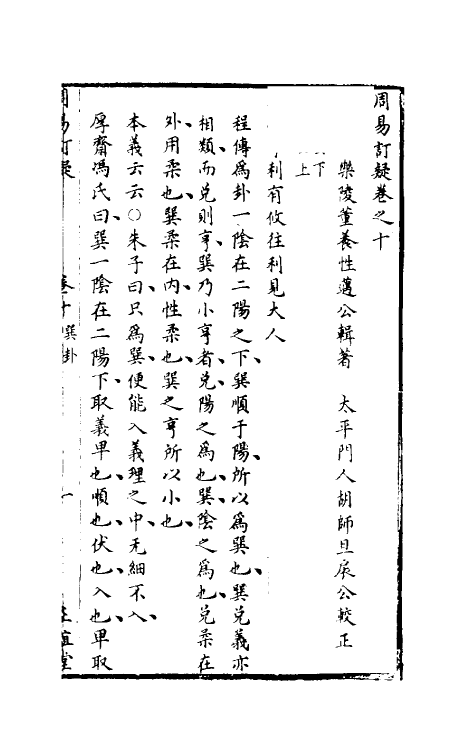 周易訂疑卷之十
樂陵董養性邁公輯著 太平門人胡師旦辰公較正
下
上
利有攸往利見大人
程傳為卦一陰在二陽之下巽順于陽所以為巽也巽兌義亦
相類而兌則亨巽乃小亨者兌陽之為也巽陰之為也兌柔在
外用柔也巽柔在内性柔也巽之亨所以小也
本義云云○朱子曰只為巽便能入義理之中无細不入
厚齋馮氏曰巽一陰在二陽下取義卑也順也伏也入也卑取
周易訂疑 卷十 巽卦 一 正誼堂